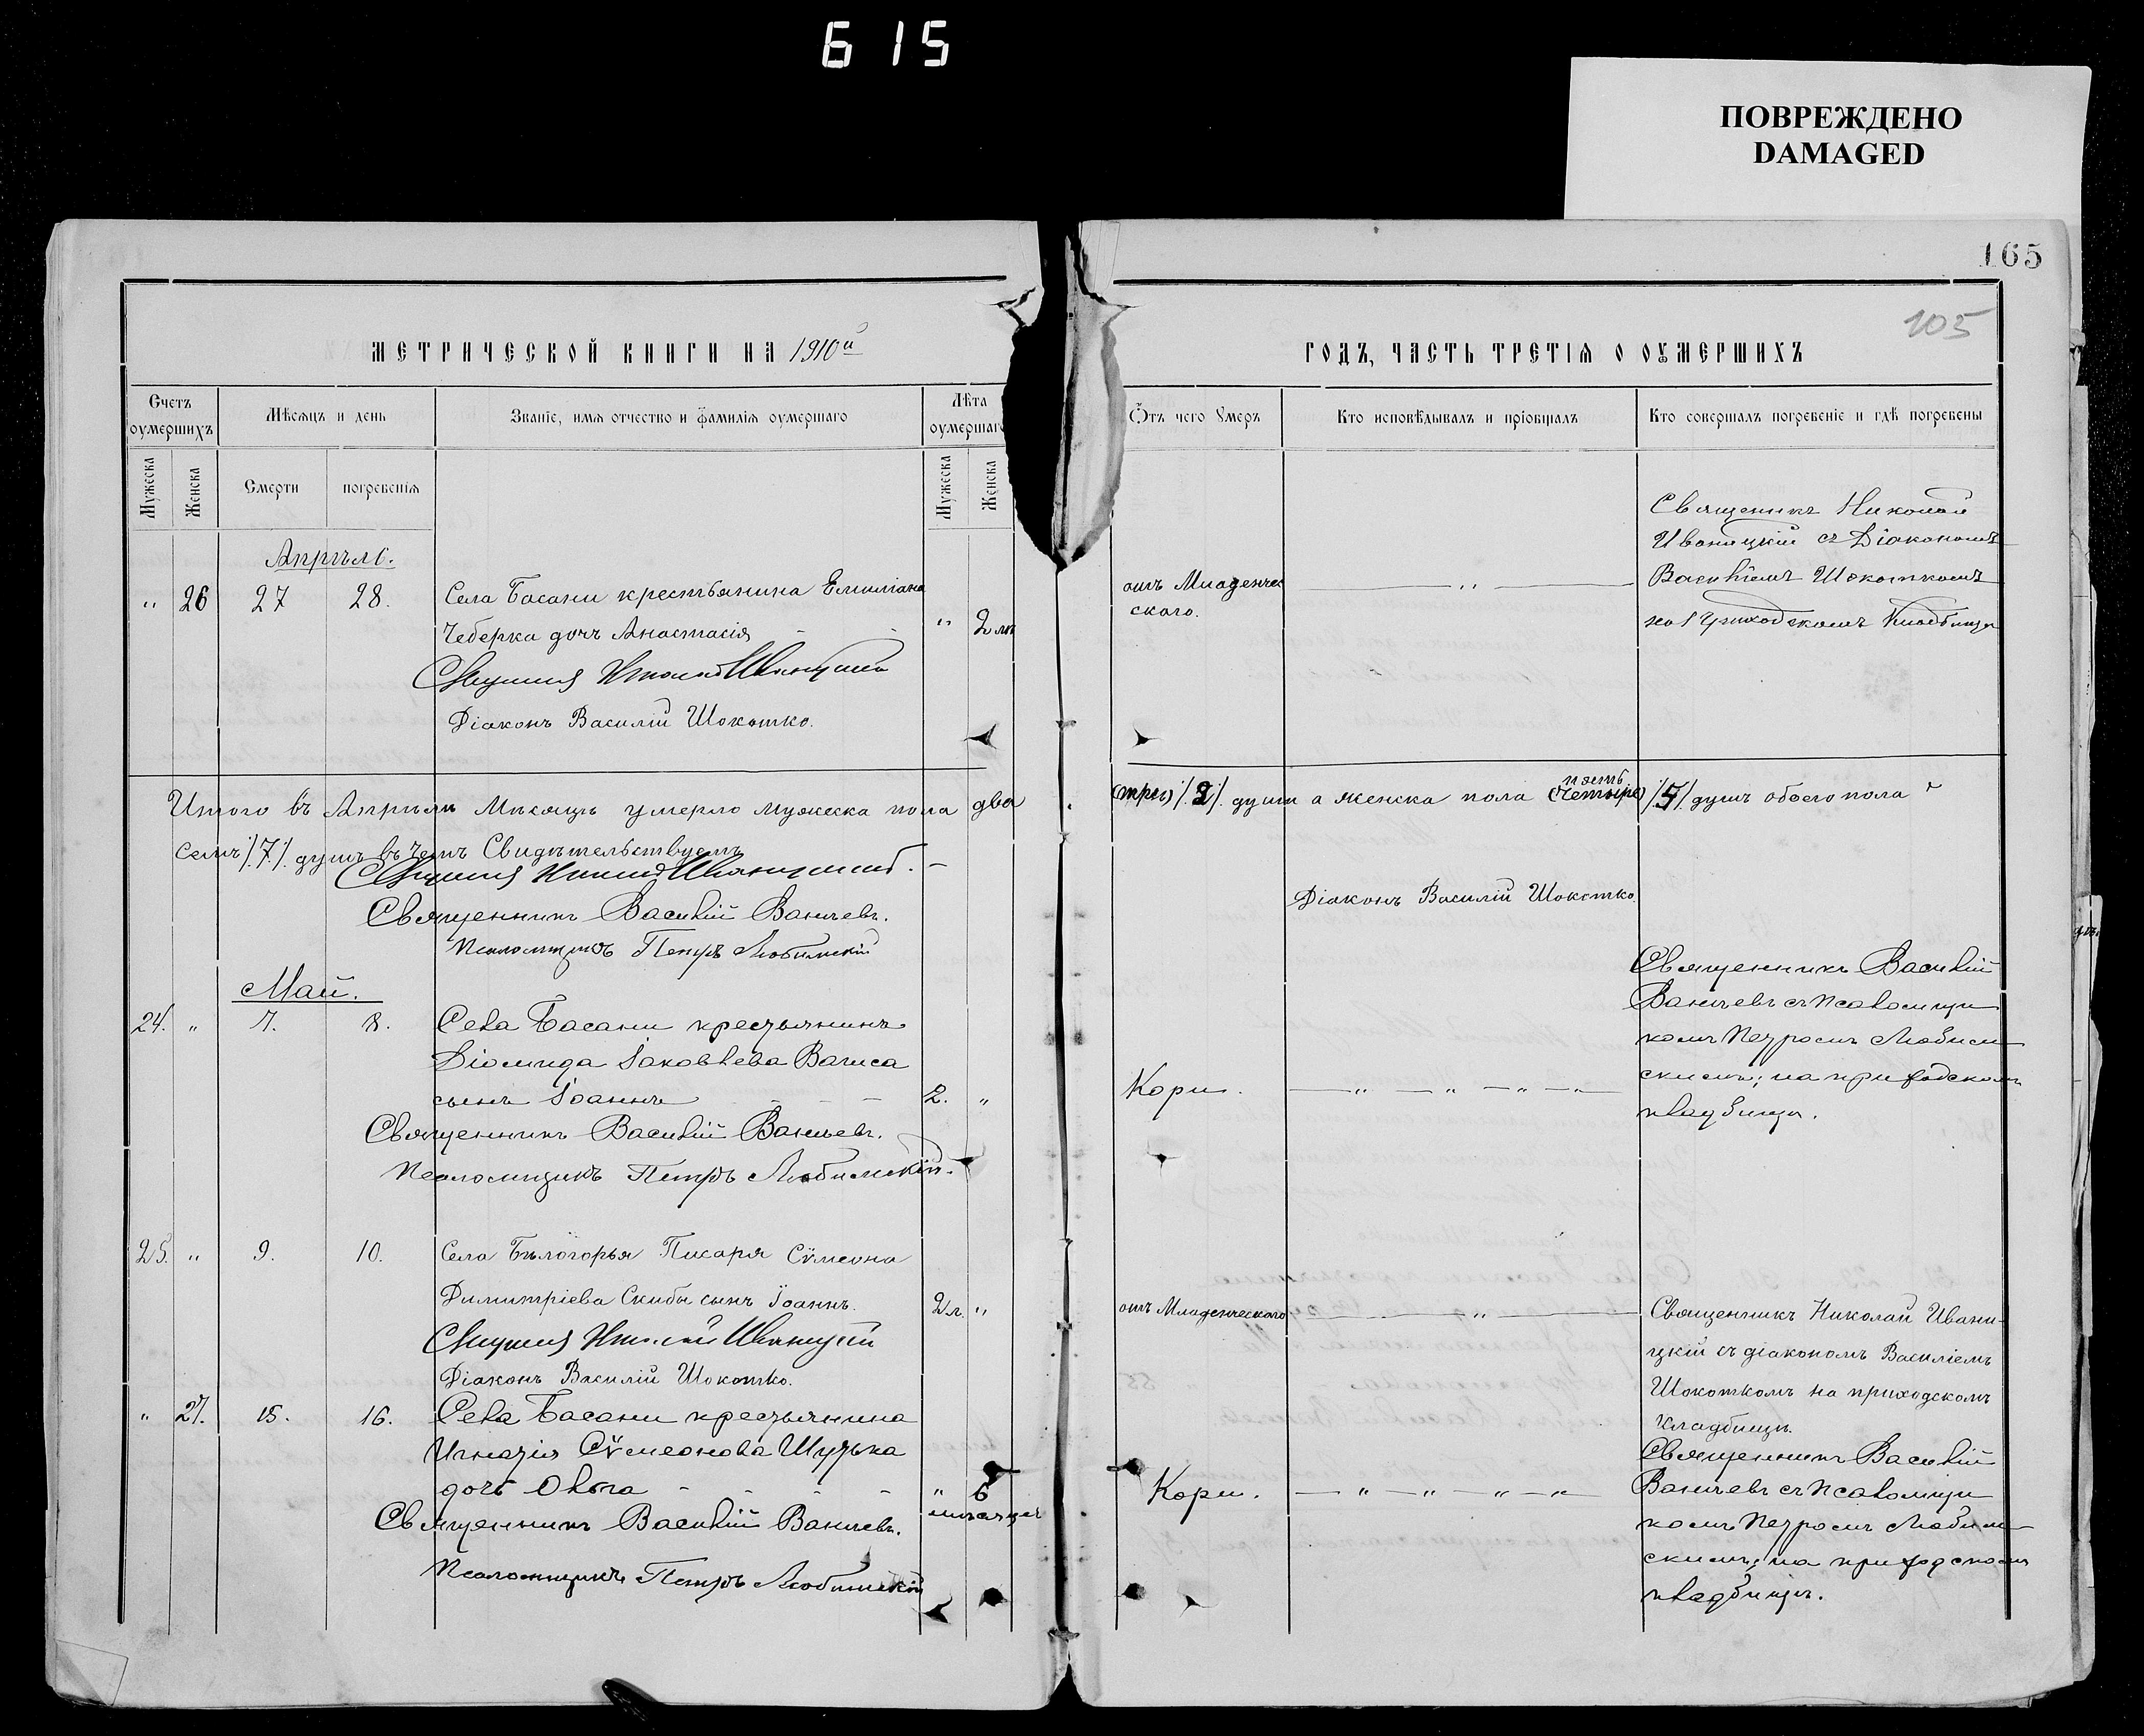 615
ПОВРЕЖДЕНО
DAMAGED
165
105
МЕТРИЧЕСКОЙ КНИГИ НА 1910й
ГОДЪ, ЧАСТЬ ТРЕТІЯ О ОУМЕРШИХЪ
Счетъ оумершихъ
Мѣсяцъ и день
Званіе, имя отчество и фамилія оумершаго
Лѣта оумершаго
Мужеска
Женска
Смерти
погребенія
Мужеска
Женска
Отъ чего умеръ
Кто исповѣдывалъ и пріобщалъ
Кто совершалъ погребеніе и гдѣ погребены
Апрѣль.
„ 26 27 28. Села Басани крестьянина Емиліана
Чеберка дочь Анастасія „ 2
Священникъ Николай Иваницкій
Діаконъ Василій Шокотко.
отъ Младенчес
ского.
„
Священникъ Николай
Иваницкій съ Діакономъ
Василіемъ Шокоткомъ
на Приходскомъ Кладбищѣ
Итого въ Апрѣлѣ Мѣсяцѣ умерло мужеска пола два
(три) /2/. души а женска пола пять (четыре) /5/. душъ обоего пола
семь /7/. душъ въ чемъ Свидѣтельствуемъ
Священникъ Николай Иваницкій. –
Священникъ Василій Ваничевъ.
Псаломщикъ Петръ Любимскій
Діаконъ Василій Шокотко
Май.
24. „ 7. 8. Села Басани крестьянина
Діомида Іаковлева Вагиса
сынъ Іоаннъ 2. „
Священникъ Василій Ваничевъ.
Псаломщикъ Петръ Любимскій.
Кори.
Священникъ Василій
Ваничевъ съ Псаломщи
комъ Петромъ Любим
скимъ; на приходскомъ
кладбищѣ.
25. „ 9. 10. Села Бѣлогорья Писаря Сѵмеона
Димитріева Скибы сынъ Іоаннъ. 2 л. „
Священникъ Николай Иваницкій
Діаконъ Василій Шокотко.
отъ Младенческого
„
Священникъ Николай Ивани
цкій съ діакономъ Василіемъ
Шокоткомъ на приходскомъ
Кладбищѣ.
„ 27. 15. 16. Села Басани крестьянина
Игнатія Сѵмеонова Шутька
дочь Ольга „ 6
мѣсяцев
Священникъ Василій Ваничевъ.
Псаломщикъ Петръ Любимскій
Кори.
Священникъ Василій
Ваничевъ съ Псаломщи
комъ Петромъ Любим
скимъ; на приходскомъ
кладбищѣ.